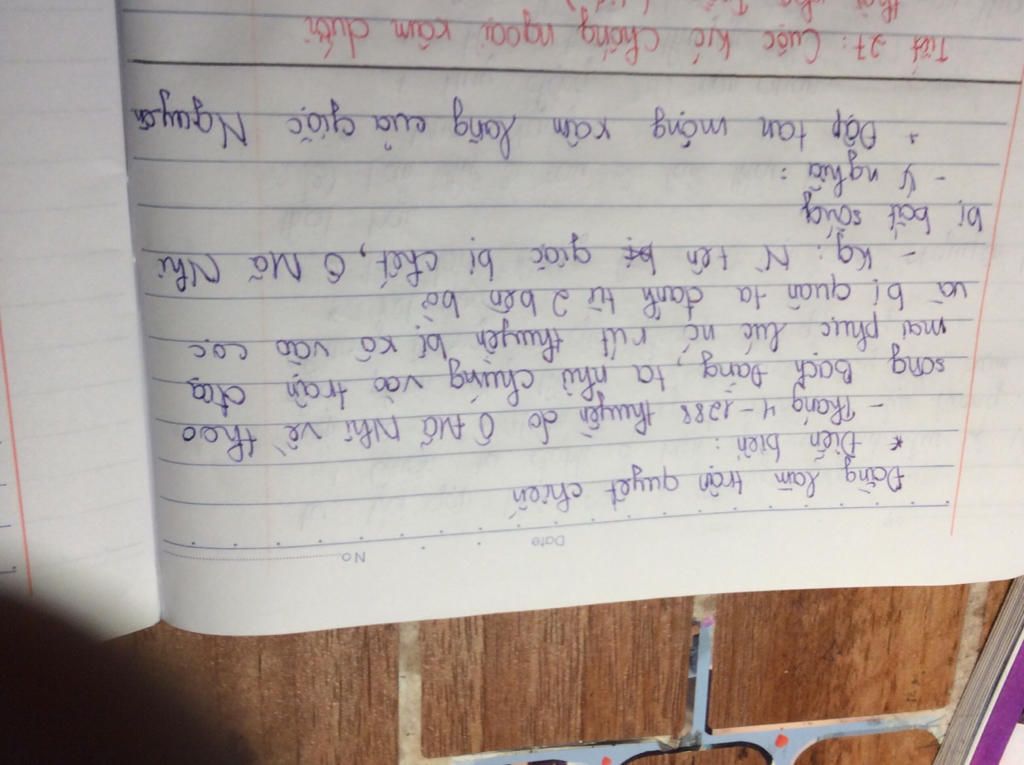 No
Date
Đằng làm trận quyết chiến
* Diễn biến :
- Tháng 4 - 1288 thuyền do Ô Mã Nhi về theo
sông Bạch Đằng, ta nhử chúng vào trận địa
mai phục lúc nc rút thuyền bị xô vào cọc
và bị quân ta đánh từ 2 bên bờ
- Kq : N tên giặc bị chết, Ô Mã Nhi
bị bắt sống
- Ý nghĩa :
+ Đập tan mộng xâm lăng của giặc Nguyên
Tiết 27 : Cuộc k/c chống ngoại xâm dưới
thời nhà